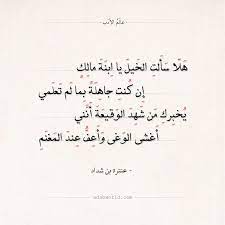 عالم الأدب
هَلّا سَأَلتِ الخَيلَ يا اِبنَةَ مالِكٍ
إِن كُنتِ جاهِلَةً بِما لَم تَعلَمي
يُخبِركِ مَن شَهِدَ الوَقيعَةَ أَنَّني
أَغشى الوَغى وَأَعِفُّ عِندَ المَغنَمِ
- عنترة بن شداد
adabworld.com